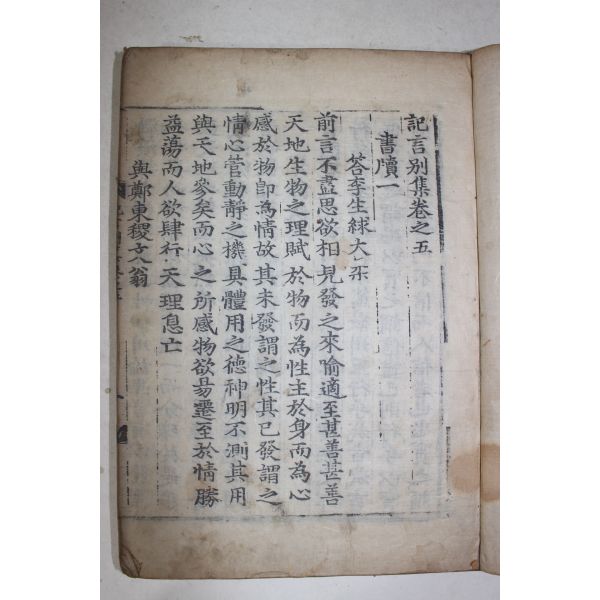 記言別集卷之五
書牘一
答李生絿大来
前言不盡思欲相見發之來喻適至甚善甚善
天地生物之理賦於物而為性主於身而為心
感於物卽為情故其未發謂之性其已發謂之
情心管動靜之機具體用之德神明不測其用
與天地參矣而心之所感物欲易遷至於情勝
益蕩而人欲肆行天理息亡
與鄭東稷文翁